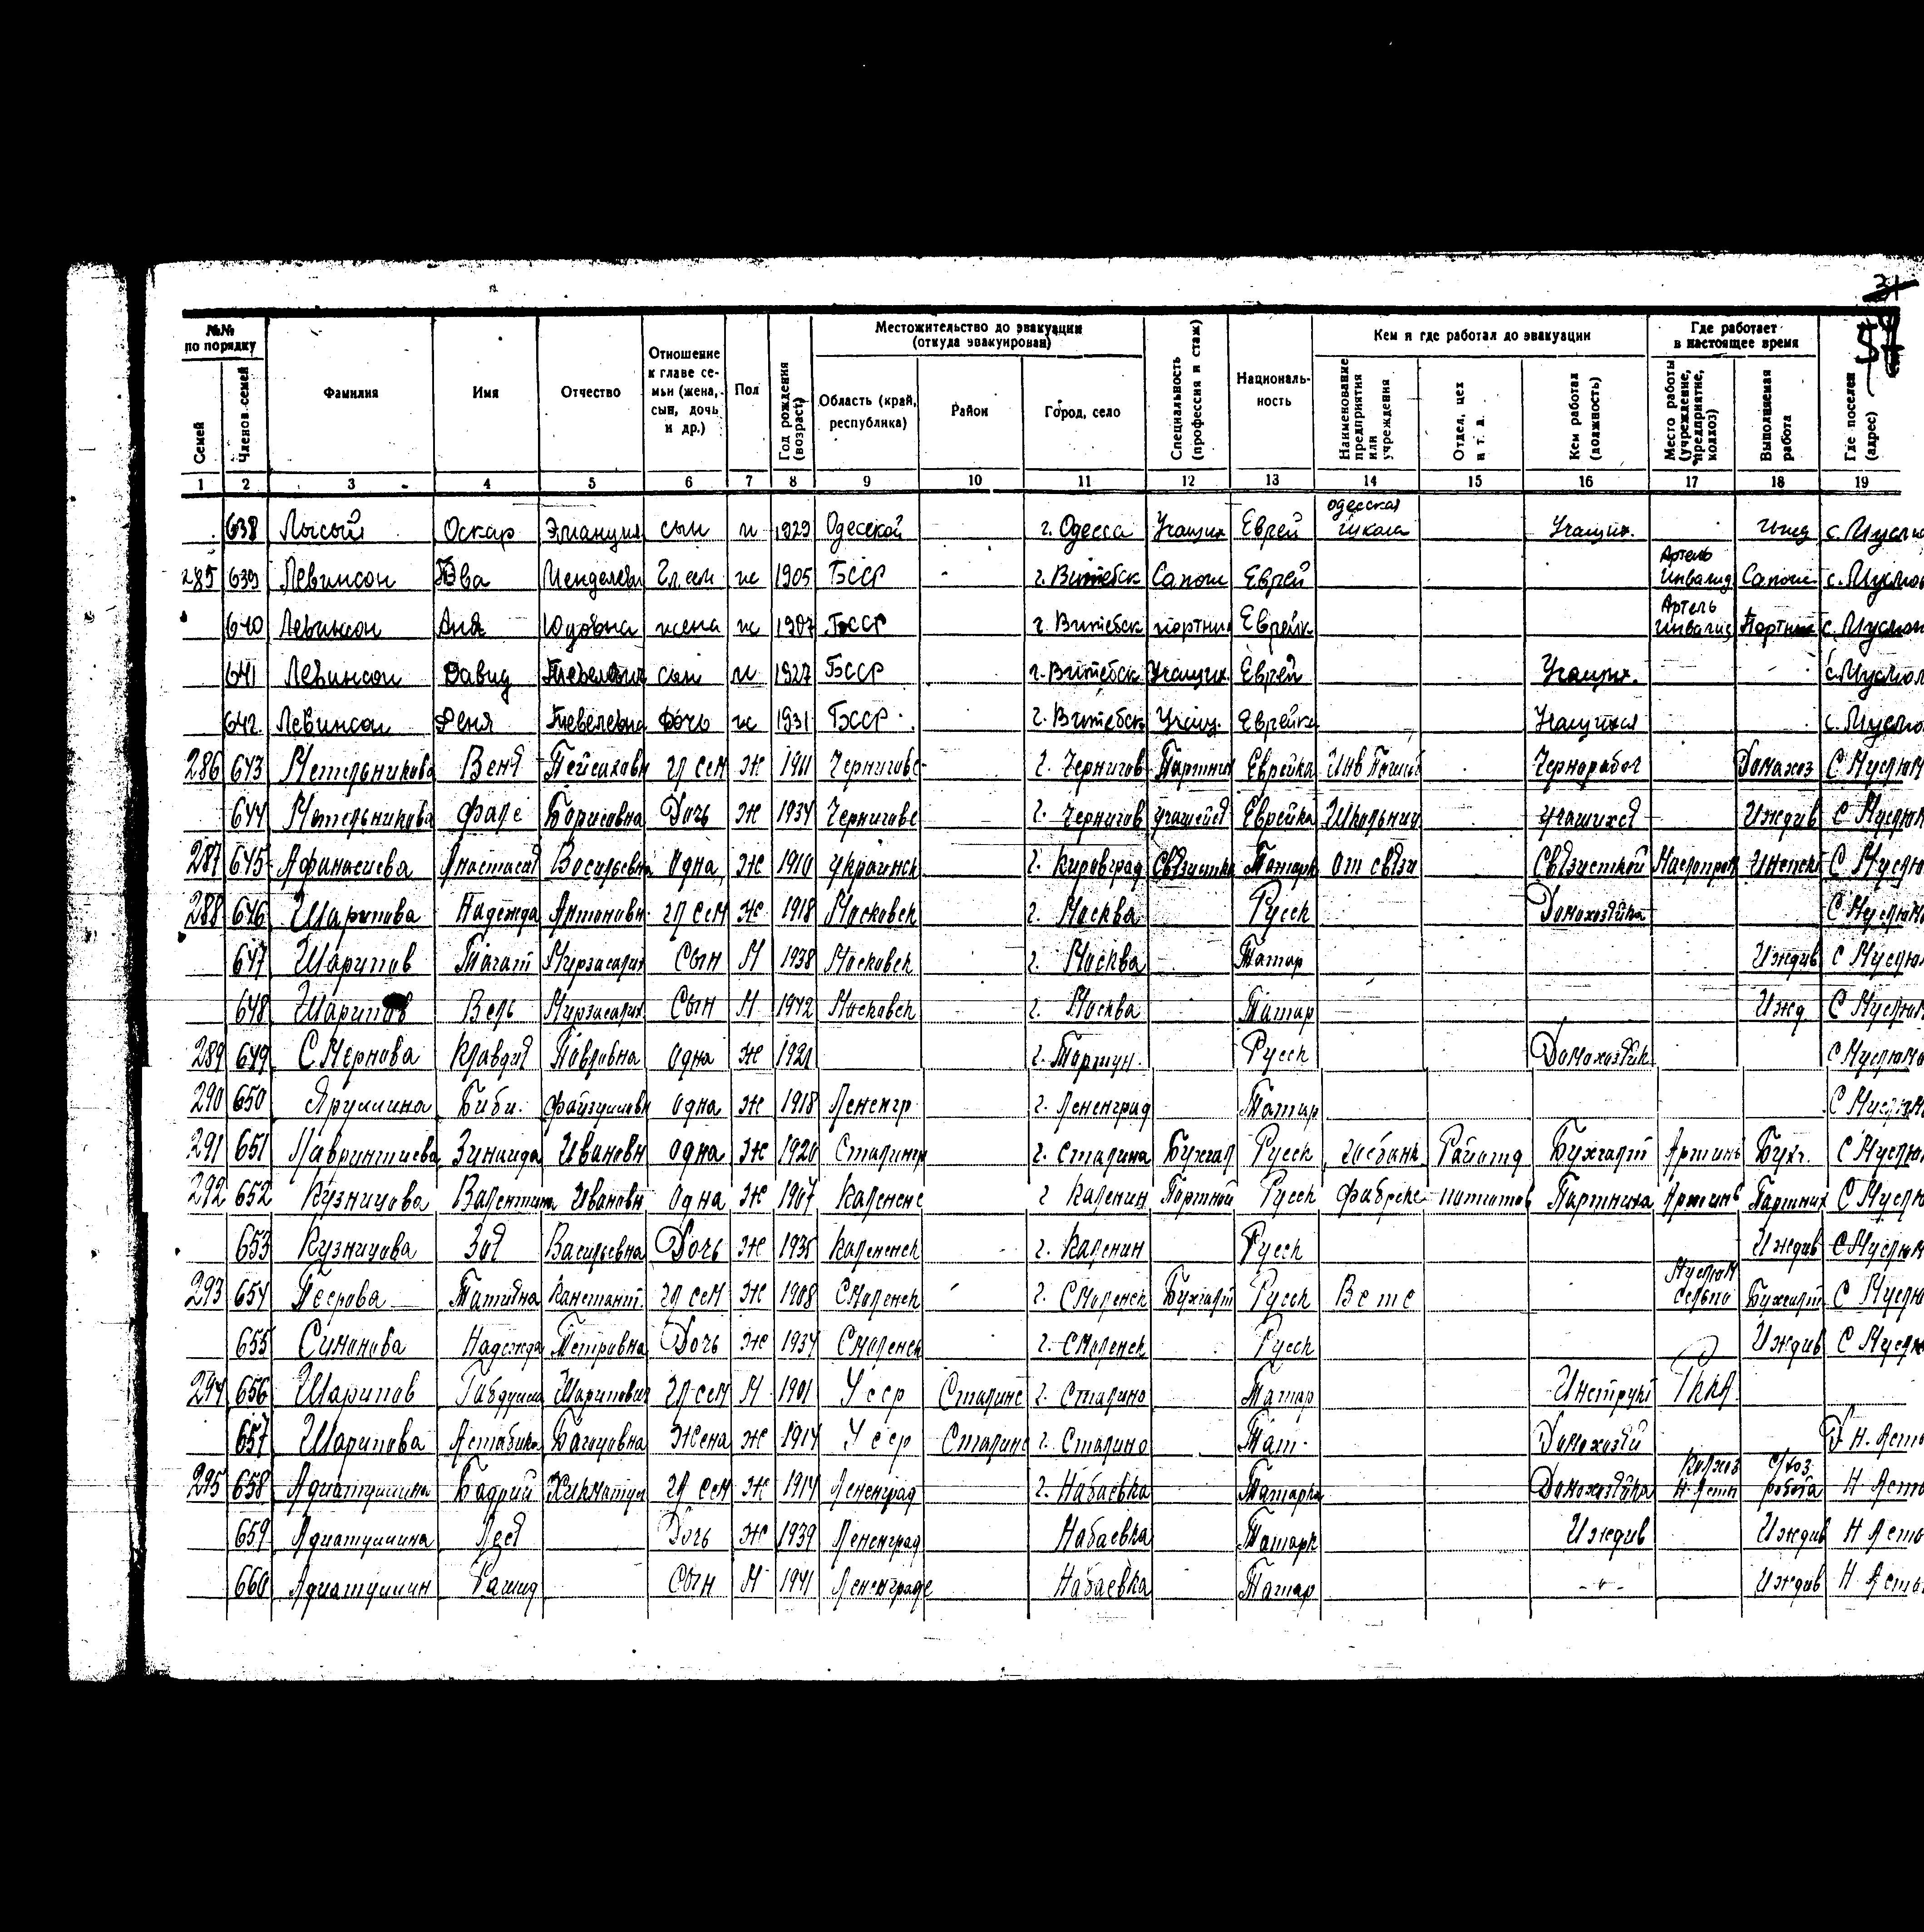 34
54
№№ по порядку
Семей
Членов семей
Фамилия
Имя
Отчество
Отношение к главе семьи (жена, сын, дочь и др.)
Пол
Год рождения (возраст)
Местожительство до эвакуации (откуда эвакуирован)
Область (край, республика)
Район
Город, село
Специальность (профессия и стаж)
Националь-ность
Кем и где работал до эвакуации
Наименование предприятия или учреждения
Отдел, цех и т. д.
Кем работал (должность)
Где работает в настоящее время
Место работы (учреждение, предприятие, колхоз)
Выполняемая работа
Где поселен (адрес)
1 2 3 4 5 6 7 8 9 10 11 12 13 14 15 16 17 18 19
638 Лысый Оскар сын м 1929 Одесской г. Одесса Учащих Еврей одесская школа Учащих. ижд с. Муслю
285 639 Левинсон Менделеви Гл сем 1905 БССР г. Витебск Сапож Еврей Артель Инвалид Сапож с. Муслю
640 Левинсон Аня Юдовна жена ж 1907 БССР г. Витебск портних Еврейк Артель Инвалид Портних с. Муслюм
641 Левинсон Давид Тевелевич сын м 1927 БССР г. Витебск Учащих Еврей Учащих. с. Муслюм
642 Левинсон Феня Тевелевна дочь ж 1931 БССР г. Витебск Учащ. Еврейка Учащихся с. Муслю
286 643 Метельникова Веня Пейсаховн гл сем ж 1911 Чернигове г. Чернигов Партних Еврейка Чернорабоч Домахоз С Муслюм
644 Метельникова Фале Борисовна Дочь ж 1934 Чернигове г. Чернигов учашейся Еврейка Школьниц учашихся Иждив С Муслюм
287 645 Афанасиева Анастасия Васильевна Одна ж 1910 украинск г. Кировград Связистка Татарк от связи Связисткой Маслопром С Муслю
288 646 Шарипова Надежда Антоновн гл сем ж 1918 Московск г. Москва Русск Домохозяйка С Муслюм
647 Шарипов Тагат Мирзасалих Сын М 1938 Московск г. Москва Татар Иждив С Муслюм
648 Шарипов Вель Мирзасалих Сын М 1942 Московск г. Москва Татар Ижд С Муслюм
289 649 Смернова Клавдия Павловна одна ж 1921 Русск Домохозяйк С Муслюмо
290 650 Яруллина Биби. Файзулловн одна ж 1918 Лененгр г. Лененград Татар С Муслюм
291 651 Лавринтиева Зинаида Ивановн одна ж 1920 Сталингр г. Сталина Бухгал Русск госбанк Райотд Бухгалт Артинь Бухг. С Муслю
292 652 Кузницова Валентина Ивановн одна ж 1907 Калененс г Каленин Портной Русск Фабреке Партниха Артинь Партних С Муслю
653 Кузницова Зоя Васильевна Дочь ж 1935 Калененск г. Каленин Русск Иждив С Муслюм
293 654 Татияна Канстант. гл сем ж 1908 Смоленск г. Смоленск Бухгалт Русск Муслюм сельпо Бухгалт С Муслю
655 Симонова Надежда Петровна Дочь ж 1934 Смоленск г. Смоленск Русск Иждив С Муслю
294 656 Шарипов Габдулла Шарипович гл сем М 1901 Усср Сталинс г. Сталино Татар Инструкт РККА
657 Шарипова Астабика Багоцовна Жена ж 1914 Усср Сталинс г. Сталино Тат. Домохозяй Д Н. Асты
295 658 Адиатуллина Бадрий Хикматул гл сем ж 1914 Лененград г. Набаевка Татарка Домохозяйка Колхоз Н-Асты с/хоз работа Н Асто
659 Адиатуллина Дочь ж 1939 Лененград Набаевка Татарк Иждив Иждив Н Асто
660 Адиатуллин Рашид Сын М 1941 Лененграде Набаевка Татар -"- Иждив Н. Асты